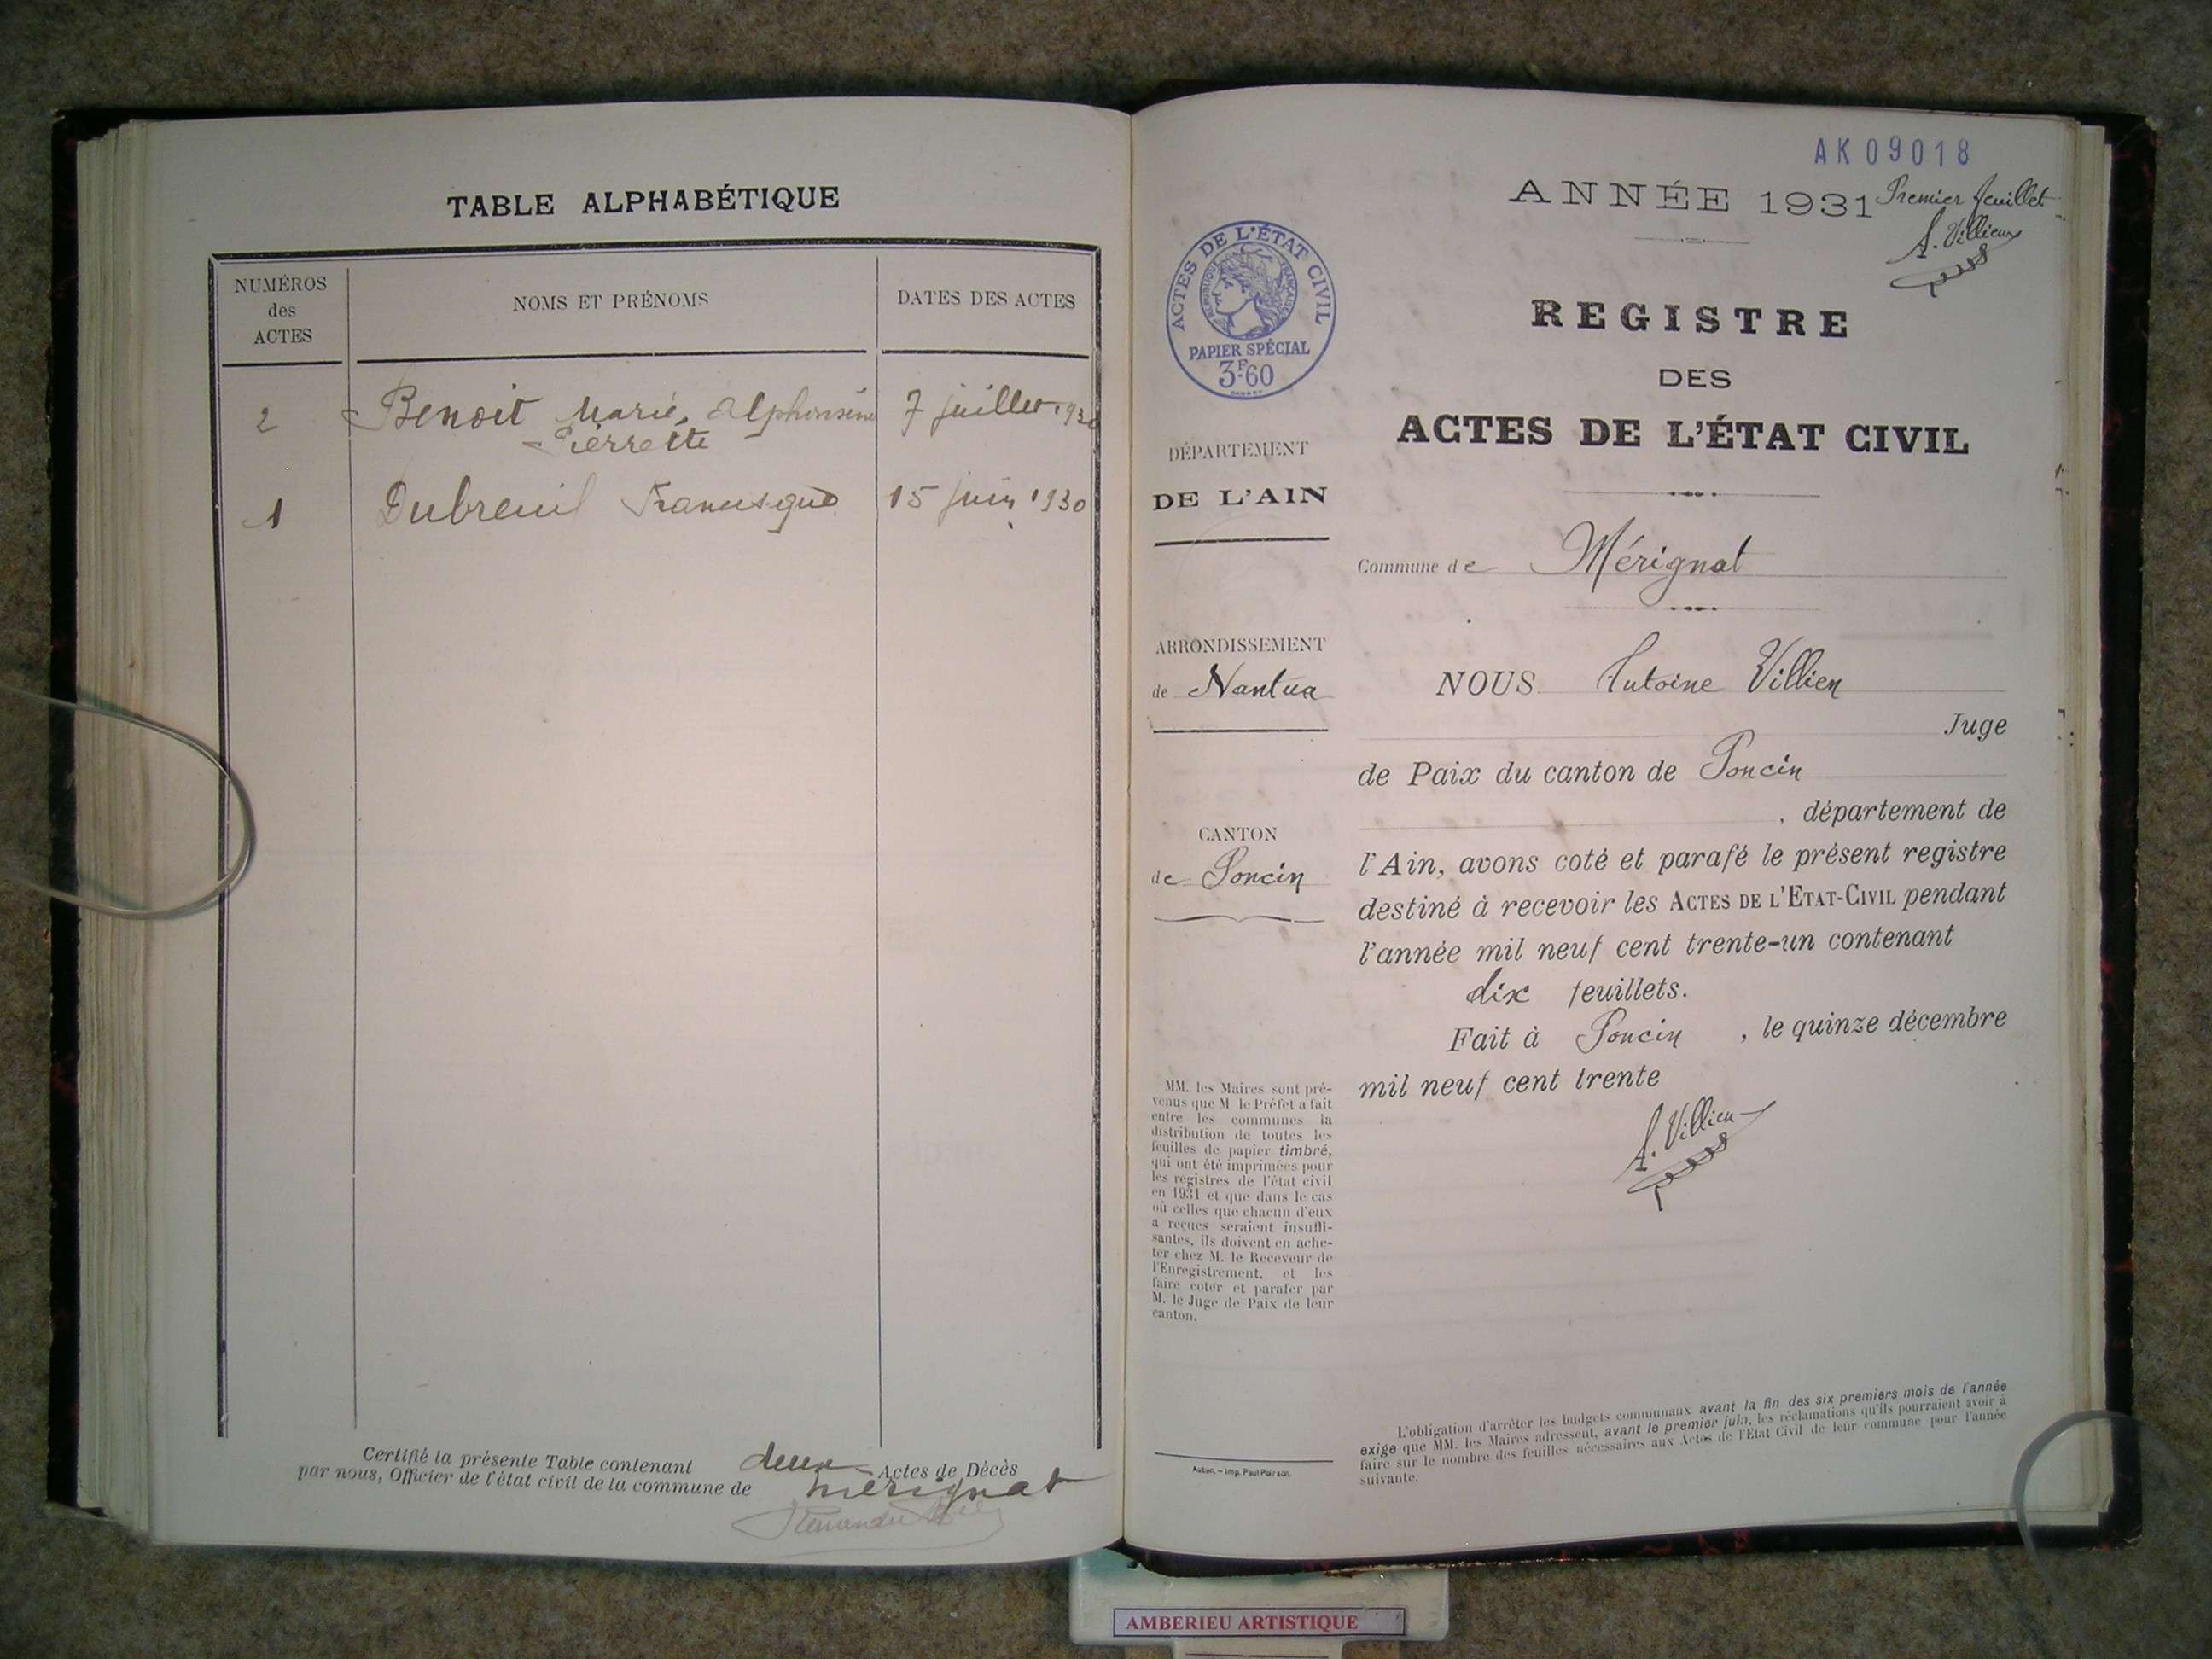 TABLE ALPHABÉTIQUE
NUMÉROS
des
ACTES
NOMS ET PRÉNOMS
DATES DES ACTES
2 Benoit Marie, Alphonsine 7 juillet 1930
Pierrette
1 Dubreuil Francisque 15 juin 1930
Certifié la présente Table contenant deux Actes de Décès
par nous, Officier de l'état civil de la commune de Mérignat
AK09018
ANNÉE 1931 Premier feuillet
A. Villien
ACTES DE L'ÉTAT CIVIL
RÉPUBLIQUE FRANÇAISE
PAPIER SPÉCIAL
3F60
REGISTRE
DES
ACTES DE L'ÉTAT CIVIL
DÉPARTEMENT
DE L'AIN
Commune de Mérignat
ARRONDISSEMENT
de Nantua
CANTON
de Poncin
NOUS Antoine Villien
Juge
de Paix du canton de Poncin
, département de
l'Ain, avons coté et parafé le présent registre
destiné à recevoir les ACTES DE L'ETAT-CIVIL pendant
l'année mil neuf cent trente-un contenant
dix feuillets.
Fait à Poncin , le quinze décembre
mil neuf cent trente
A. Villien
MM. les Maires sont pré-
venus que M le Préfet a fait
entre les communes la
distribution de toutes les
feuilles de papier timbré,
qui ont été imprimées pour
les registres de l'état civil
en 1931 et que dans le cas
où celles que chacun d'eux
a reçues seraient insuffi-
santes, ils doivent en ache-
ter chez M. le Receveur de
l'Enregistrement, et les
faire coter et parafer par
M. le Juge de Paix de leur
canton.
Autun. – Imp. Paul Poirson.
L'obligation d'arrêter les budgets communaux avant la fin des six premiers mois de l'année
exige que MM. les Maires adressent, avant le premier juin, les réclamations qu'ils pourraient avoir à
faire sur le nombre des feuilles nécessaires aux Actes de l'État Civil de leur commune pour l'année
suivante.
AMBERIEU ARTISTIQUE